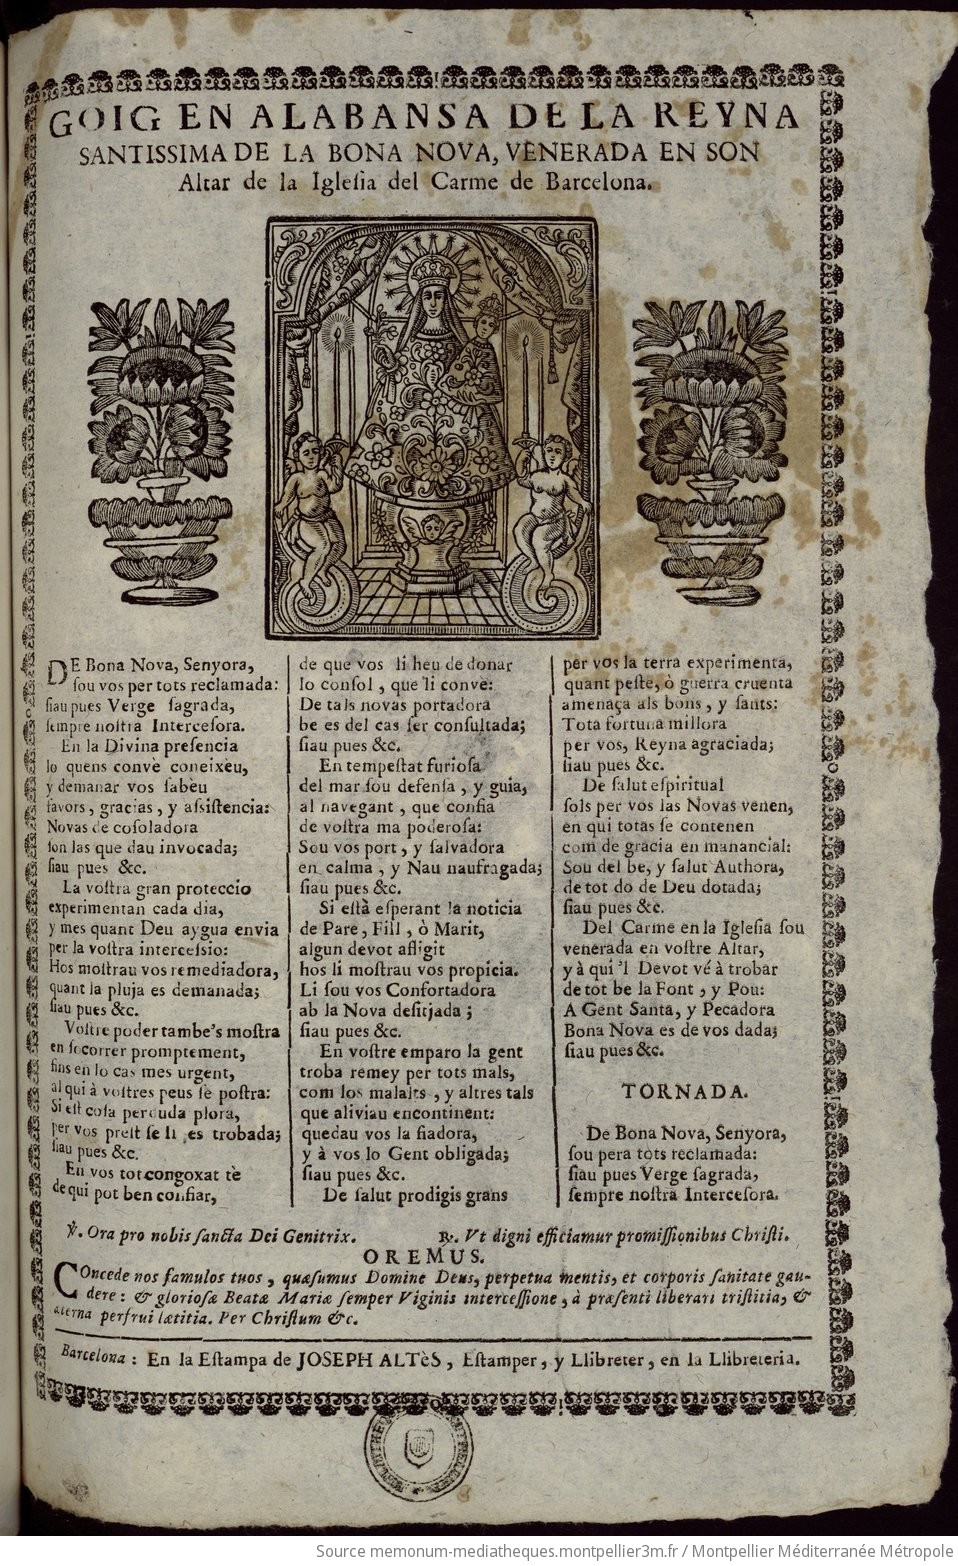 GOIG EN ALABANSA DE LA REYNA
SANTISSIMA DE LA BONA NOVA, VENERADA EN SON
Altar de la Iglesia del Carme de Barcelona.
DE Bona Nova, Senyora,
sou vos per tots reclamada:
siau pues Verge sagrada,
sempre nostra Intercesora.
En la Divina presencia
lo quens convè coneixèu,
y demanar vos sabèu
favors, gracias, y assistencia:
Novas de cosoladora
son las que dau invocada;
siau pues &c.
La vostra gran proteccio
experimentan cada dia,
y mes quant Deu aygua envia
per la vostra intercessio:
Hos mostrau vos remediadora,
quant la pluja es demanada;
siau pues &c.
Vostre poder tambe's mostra
en socorrer promptement,
fins en lo cas mes urgent,
al qui à vostres peus se postra:
Si est cosa perduda plora,
per vos prest se li es trobada;
siau pues &c.
En vos tot congoxat tè
de qui pot ben confiar,
de que vos li heu de donar
lo consol, que li conve:
De tals novas portadora
be es del cas ser consultada;
siau pues &c.
En tempestat furiosa
del mar sou defensa, y guia,
al navegant, que confia
de vostra ma poderosa:
Sou vos port, y salvadora
en calma, y Nau naufragada;
siau pues &c.
Si està esperant la noticia
de Pare, Fill, ò Marit,
algun devot afligit
hos li mostrau vos propicia.
Li sou vos Confortadora
ab la Nova desitjada;
siau pues &c.
En vostre emparo la gent
troba remey per tots mals,
com los malalts, y altres tals
que aliviau encontinent:
quedau vos la fiadora,
y à vos lo Gent obligada;
siau pues &c.
De salut prodigis grans
per vos la terra experimenta,
quant peste, ò guerra cruenta
amenaça als bons, y sants:
Tota fortuna millora
per vos, Reyna agraciada;
siau pues &c.
De salut espiritual
sols per vos las Novas venen,
en qui totas se contenen
com de gracia en manancial:
Sou del be, y salut Authora,
de tot do de Deu dotada;
siau pues &c.
Del Carme en la Iglesia sou
venerada en vostre Altar,
y à qui 'l Devot vé à trobar
de tot be la Font, y Pou:
A Gent Santa, y Pecadora
Bona Nova es de vos dada;
siau pues &c.
TORNADA.
De Bona Nova, Senyora,
sou pera tots reclamada:
siau pues Verge sagrada,
sempre nostra Intercesora.
℣. Ora pro nobis sancta Dei Genitrix. ℞. Vt digni efficiamur promissionibus Christi.
OREMUS.
COncede nos famulos tuos, quæsumus Domine Deus, perpetua mentis, et corporis sanitate gau-
dere: & gloriosæ Beatæ Mariæ semper Viginis intercessione, à præsenti liberari tristitia, &
æterna perfrui lætitia. Per Christum &c.
Barcelona: En la Estampa de JOSEPH ALTèS, Estamper, y Llibreter, en la Llibreteria.
Source memonum-mediatheques.montpellier3m.fr / Montpellier Méditerranée Métropole